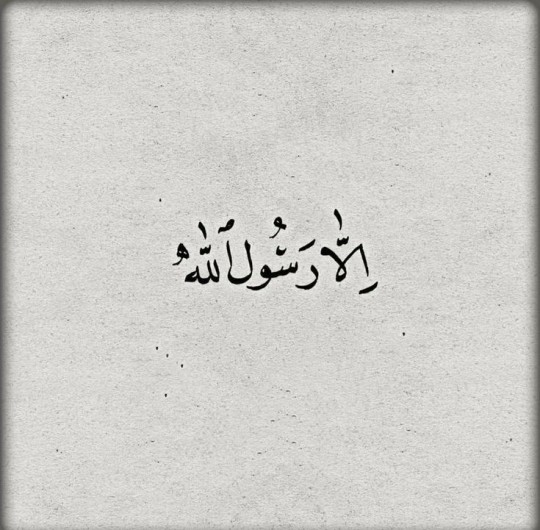 إِلَّا رَسُولَ ٱللَّٰهُ